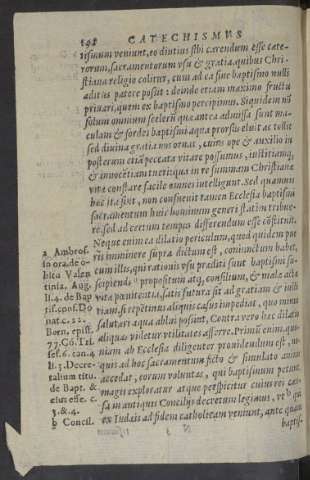 CATECHISMVS
tismum veniunt, eo diutius sibi carendum esse cete-
rorum, sacramentorum vsu & gratia, quibus Chri-
stiana religio colitur, cum ad ea sine baptismo nulli
aditus patere possit: deinde etiam maximo fructu
priuari, quem ex baptismo percipimus. Siquidem nō
solum omnium scelerū quæ antea admissa sunt ma-
culam & sordes baptismi aqua prorsus eluit ac tollit
sed diuina gratia nos ornat, cuius ope & auxilio in
posterum etiā peccata vitare possumus, iustitiamq́;
& innocētiam tueri: qua in re summam Christianæ
vitæ constare facile omnes intelligunt. Sed quamuis
hæc ita sint, non consueuit tamen Ecclesia baptismi
sacramentum huic hominum generi statim tribue-
re, sed ad certum tempus differendum esse cōstituit.
Neque enim ea dilatio periculum, quod quidem pue
ris imminere supra dictum est, coniunctum habet,
cum illis, qui rationis vsu præditi sunt baptismi su-
scipiendi propositum atq́; consilium, & malè actæ
vitæ pœnitentia, satis futura sit ad gratiam & iusti-
tiam, si repentinus aliquis casus impediat, quo minus
salutari aqua ablui possint. Contra vero hæc dilatio
aliquas videtur vtilitates afferre. Primū enim, quo-
niam ab Ecclesia diligenter prouidendum est, ne
quis ad hoc sacramentum ficto & simulato animo
accedat, eorum voluntas, qui baptismum petunt,
magis exploratur atque perspicitur cuius rei cau-
sa in antiquis Concilijs decretum legimus, vt
ex Iudæis ad fidem catholicam veniunt, ante quam
baptis-
a Ambros.
in ora. de o-
bito Valen
tinia. Aug.
li. 4. de Bap
tis. cont. Do
nat. c. 22.
Bern. epist.
77. Cō. Tri.
ses. 6. can. 4
li. 3. Decre-
talium titu.
de Bapt. &
eius effe. c.
3. & 4.
b Concil.